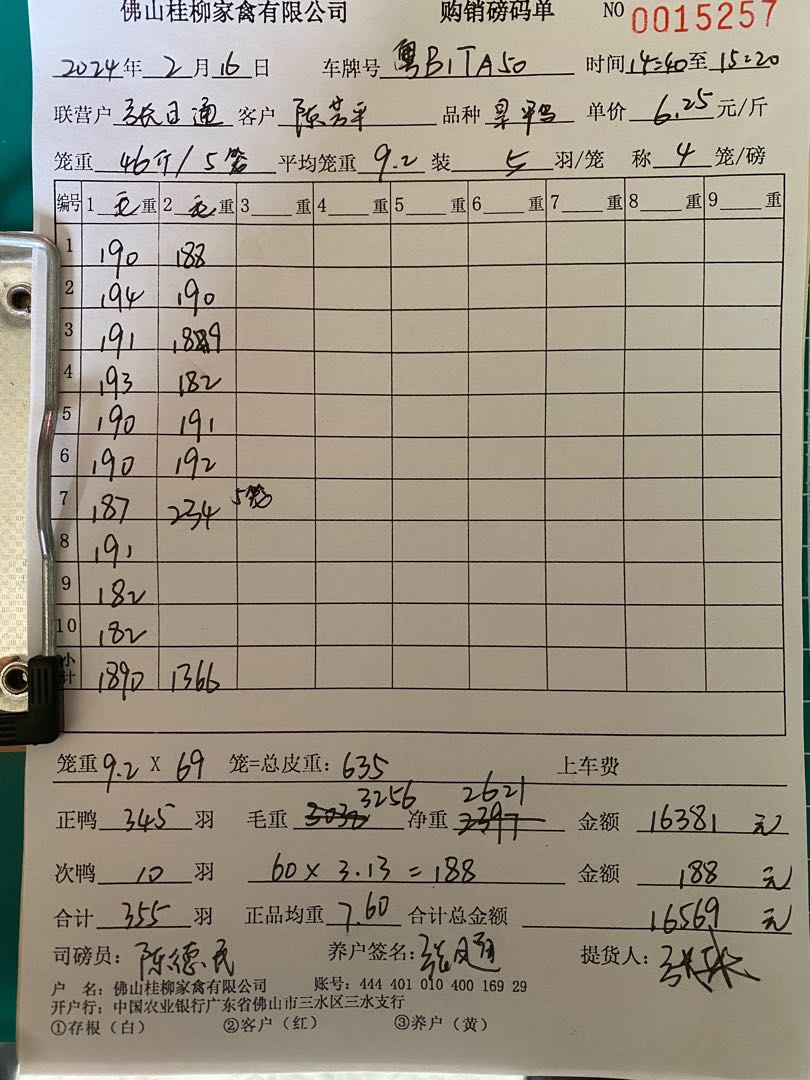 佛山桂柳家禽有限公司 购销磅码单 NO 0015257
2024年2月16日 车牌号 粤B1TA50 时间14:40至15:20
联营户 张日通 客户 陈芳平 品种 单价 6.25 元/斤
笼重 46斤/5笼 平均笼重 9.2 装 5 羽/笼 称 4 笼/磅
编号 1 毛 重 2 毛 重 3 重 4 重 5 重 6 重 7 重 8 重 9 重
1 190 188
2 194 190
3 191 189
4 193 182
5 190 191
6 190 192
7 187 234 5笼
8 191
9 182
10 182
小计 1890 1366
笼重 9.2 X 69 笼=总皮重: 635 上车费
正鸭 345 羽 毛重 3256 净重 2621 金额 16381 元
次鸭 10 羽 60 x 3.13 = 188 金额 188 元
合计 355 羽 正品均重 7.60 合计总金额 16569 元
司磅员: 陈德民 养户签名: 提货人:
户 名: 佛山桂柳家禽有限公司 账号: 444 401 010 400 169 29
开户行: 中国农业银行广东省佛山市三水区三水支行
①存根(白) ②客户(红) ③养户(黄)